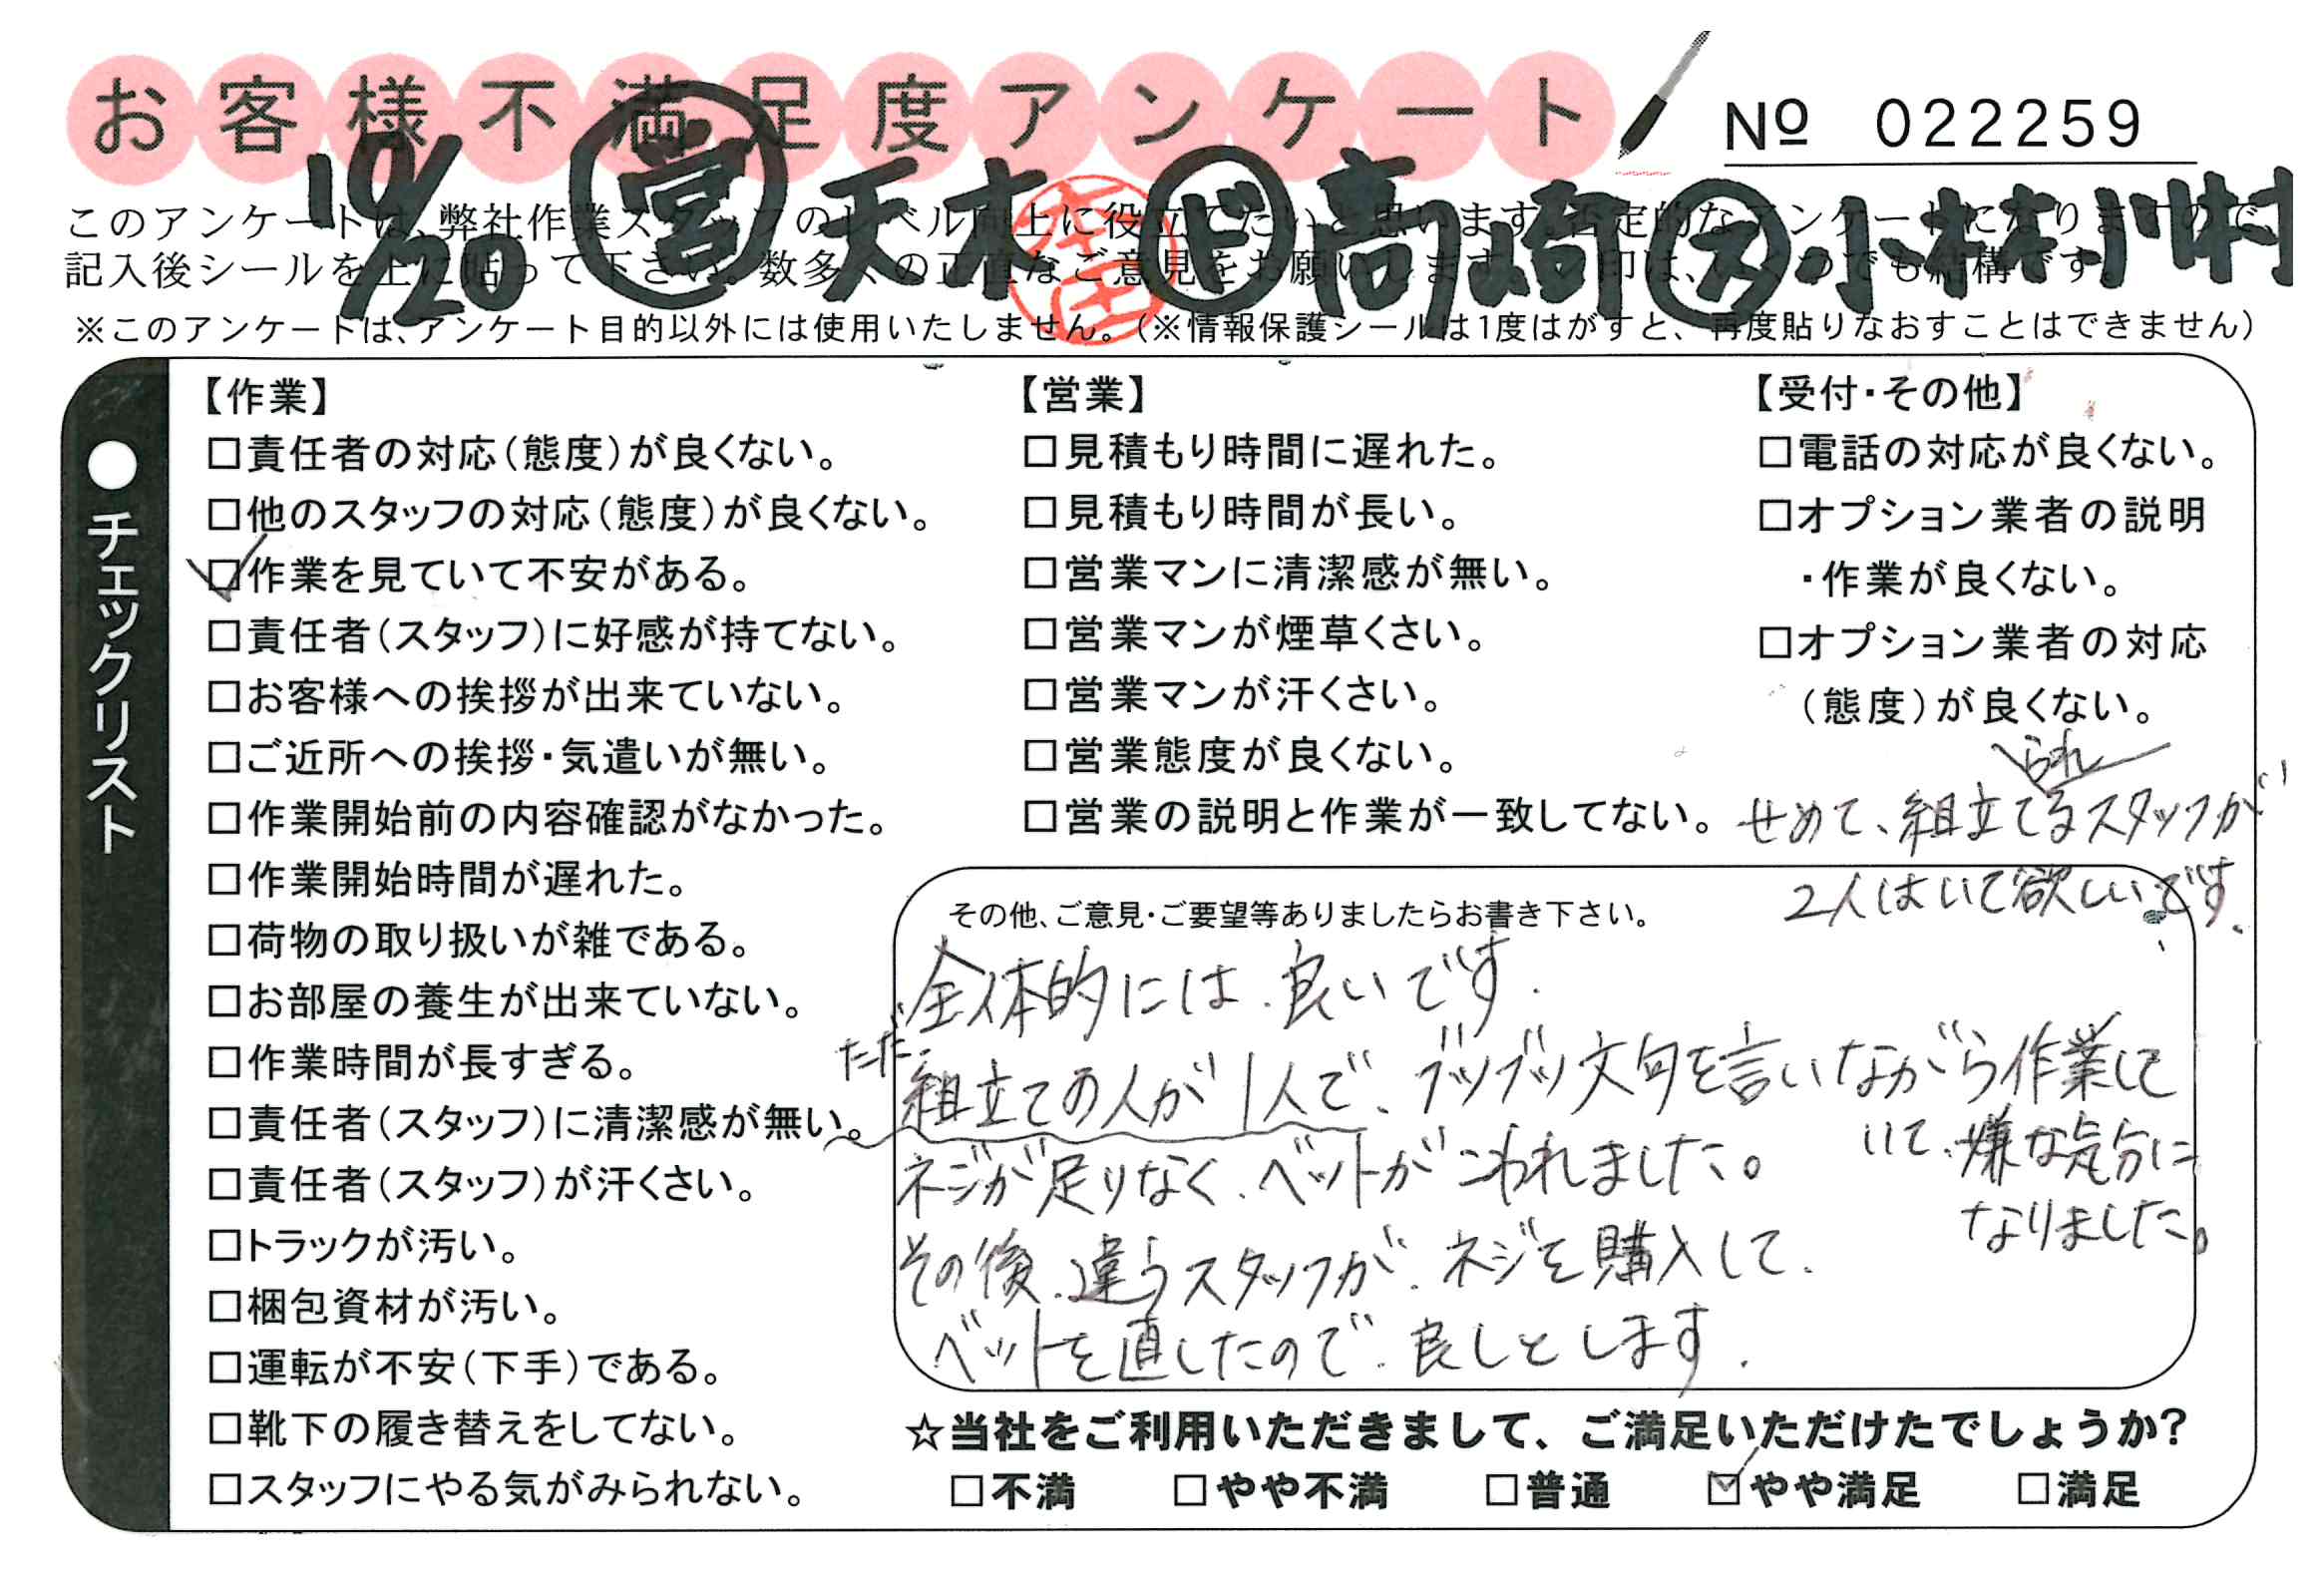 お客様不満足度アンケート
№ 022259
10/20 営 天木 ド 高崎 ス 小林 小村
このアンケートは、弊社作業スタッフのレベル向上に役立てたいと思います。否定的なアンケートになりますので
記入後シールを上に貼って下さい。数多くの正直なご意見をお願いします。レ印は、いくつでも結構です。
※このアンケートは、アンケート目的以外には使用いたしません。(※情報保護シールは1度はがすと、再度貼りなおすことはできません)
●チェックリスト
【作業】
□責任者の対応(態度)が良くない。
□他のスタッフの対応(態度)が良くない。
☑作業を見ていて不安がある。
□責任者(スタッフ)に好感が持てない。
□お客様への挨拶が出来ていない。
□ご近所への挨拶・気遣いが無い。
□作業開始前の内容確認がなかった。
□作業開始時間が遅れた。
□荷物の取り扱いが雑である。
□お部屋の養生が出来ていない。
□作業時間が長すぎる。
□責任者(スタッフ)に清潔感が無い。
□責任者(スタッフ)が汗くさい。
□トラックが汚い。
□梱包資材が汚い。
□運転が不安(下手)である。
□靴下の履き替えをしてない。
□スタッフにやる気がみられない。
【営業】
□見積もり時間に遅れた。
□見積もり時間が長い。
□営業マンに清潔感が無い。
□営業マンが煙草くさい。
□営業マンが汗くさい。
□営業態度が良くない。
□営業の説明と作業が一致してない。
【受付・その他】
□電話の対応が良くない。
□オプション業者の説明
・作業が良くない。
□オプション業者の対応
(態度)が良くない。
られ
せめて、組立てるスタッフが
2人はいて欲しいです.
その他、ご意見・ご要望等ありましたらお書き下さい。
全体的には、良いです.
ただ、組立ての人が1人で、ブツブツ文句を言いながら作業して
いて、嫌な気分に
なりました。
ネジが足りなく、ベットがこわれました。
その後、違うスタッフが、ネジを購入して、
ベットを直したので、良しとします.
☆当社をご利用いただきまして、ご満足いただけたでしょうか?
□不満 □やや不満 □普通 ☑やや満足 □満足